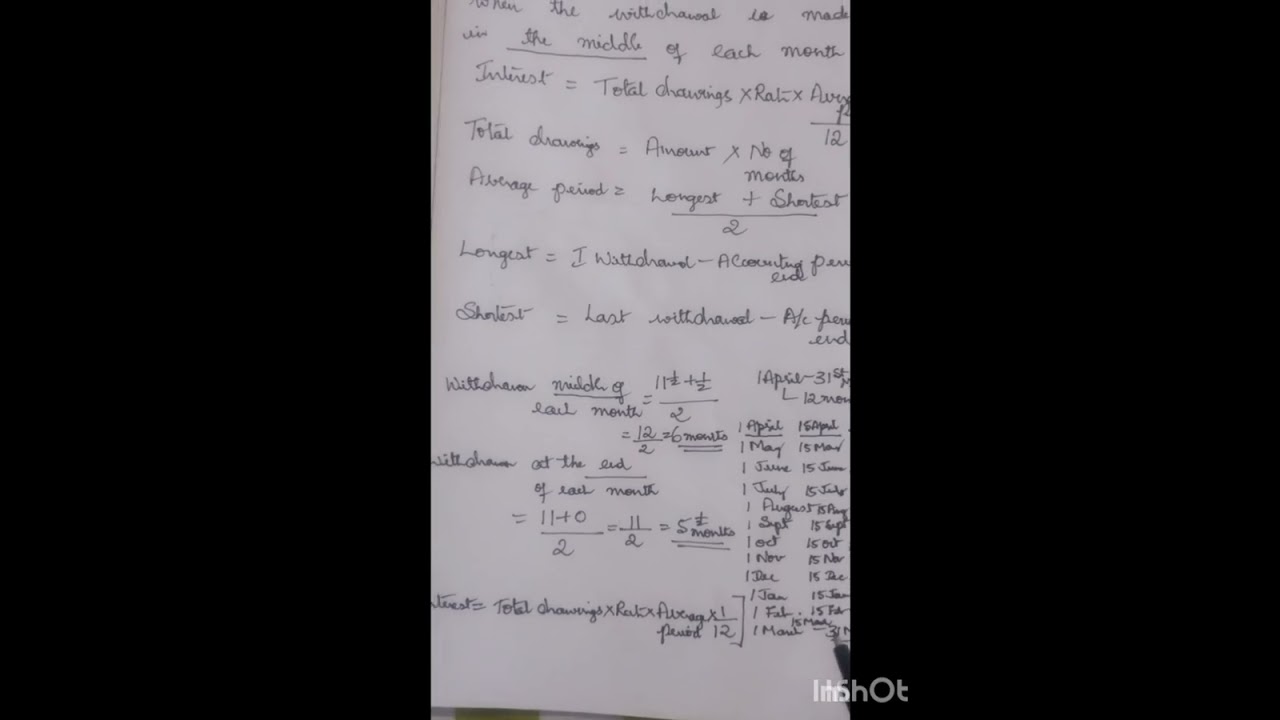 When the withdrawal is made
in the middle of each month
Interest = Total drawings × Rate × Average
12
Total drawings = Amount × No of
months
Average period = Longest + Shortest
2
Longest = I Withdrawal – Accounting peri
end
Shortest = Last withdrawal – A/c peri
end
Withdrawn middle of each month = 11½ + ½
2
= 12/2 = 6 months
Withdrawn at the end
of each month
= 11+0/2 = 11/2 = 5½ months
Interest = Total drawings × Rate × Average period × 1/12
1 April – 31st
12 mon
1 April 15 April
1 May 15 May
1 June 15 June
1 July 15 July
1 August 15 Aug
1 Sept 15 Sept
1 Oct 15 Oct
1 Nov 15 Nov
1 Dec 15 Dec
1 Jan 15 Jan
1 Feb 15 Feb
15 Mar
1 March – 31 M
InShOt